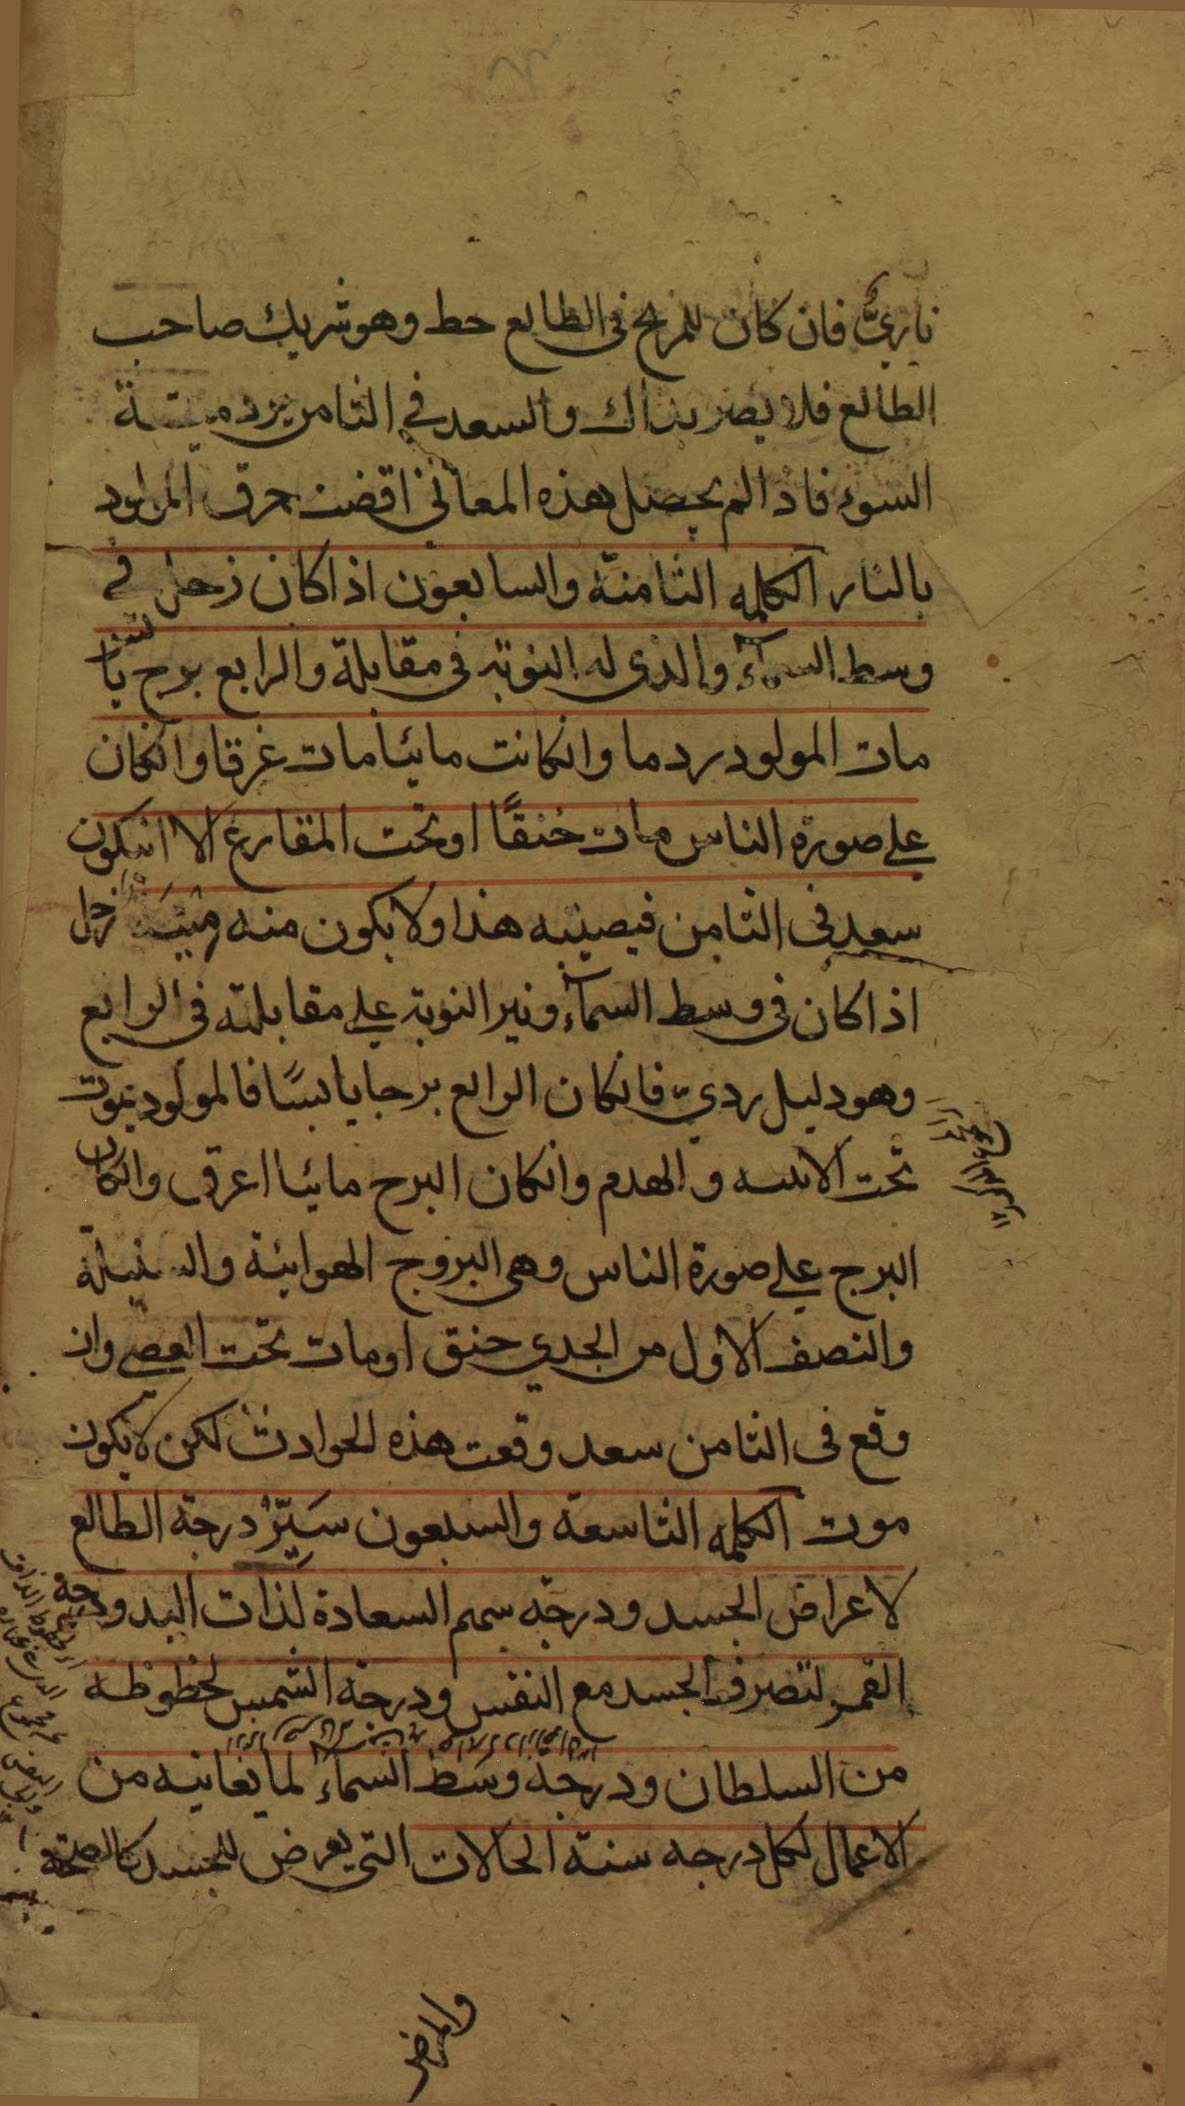 ناريّ فان كان للمريخ في الطالع حط وهو شريك صاحب
الطالع فلا يضر بذاك والسعد في الثامن يرد ميتة
السوء فاذا لم يحصل هذه المعاني اقضت بحرق المولود
بالنار الكلمه الثامنة والسابعون اذا كان زحل في
وسط السمآء والذى له النوبة في مقابلة والرابع برج يابس
مات المولود ردما وانكانت مائيا مات غرقا وانكان
على صورة الناس مات خنقًا او تحت المقارع الا انيكون
سعد في الثامن فيصيبه هذا ولا يكون منه ميتة زحل
اذا كان في وسط السمآء ونير النوبة على مقابلته في الرابع
وهو دليل ردي فانكان الرابع برجا يابسًا فالمولود يموت
تحت الابنيه والهدم وانكان البرج مائيا اغرق وانكان
البرج على صورة الناس وهي البروج الهوائية والسنبلة
والنصف الاول من الجدي خنق او مات تحت العصى وان
وقع في الثامن سعد وقعت هذه الحوادث لكن لا يكون
موت الكلمه التاسعة والسبعون سَيِّرْ درجة الطالع
لاعراض الجسد ودرجة سهم السعادة لذات اليد ودرجة
القمر لتصرف الجسد مع النفس ودرجة الشمس لحظوظه
من السلطان ودرجة وسط السماء لما يعانيه من
الاعمال لكل درجه سنة الحالات التى يعرض للجسد كالصحة
والمرض